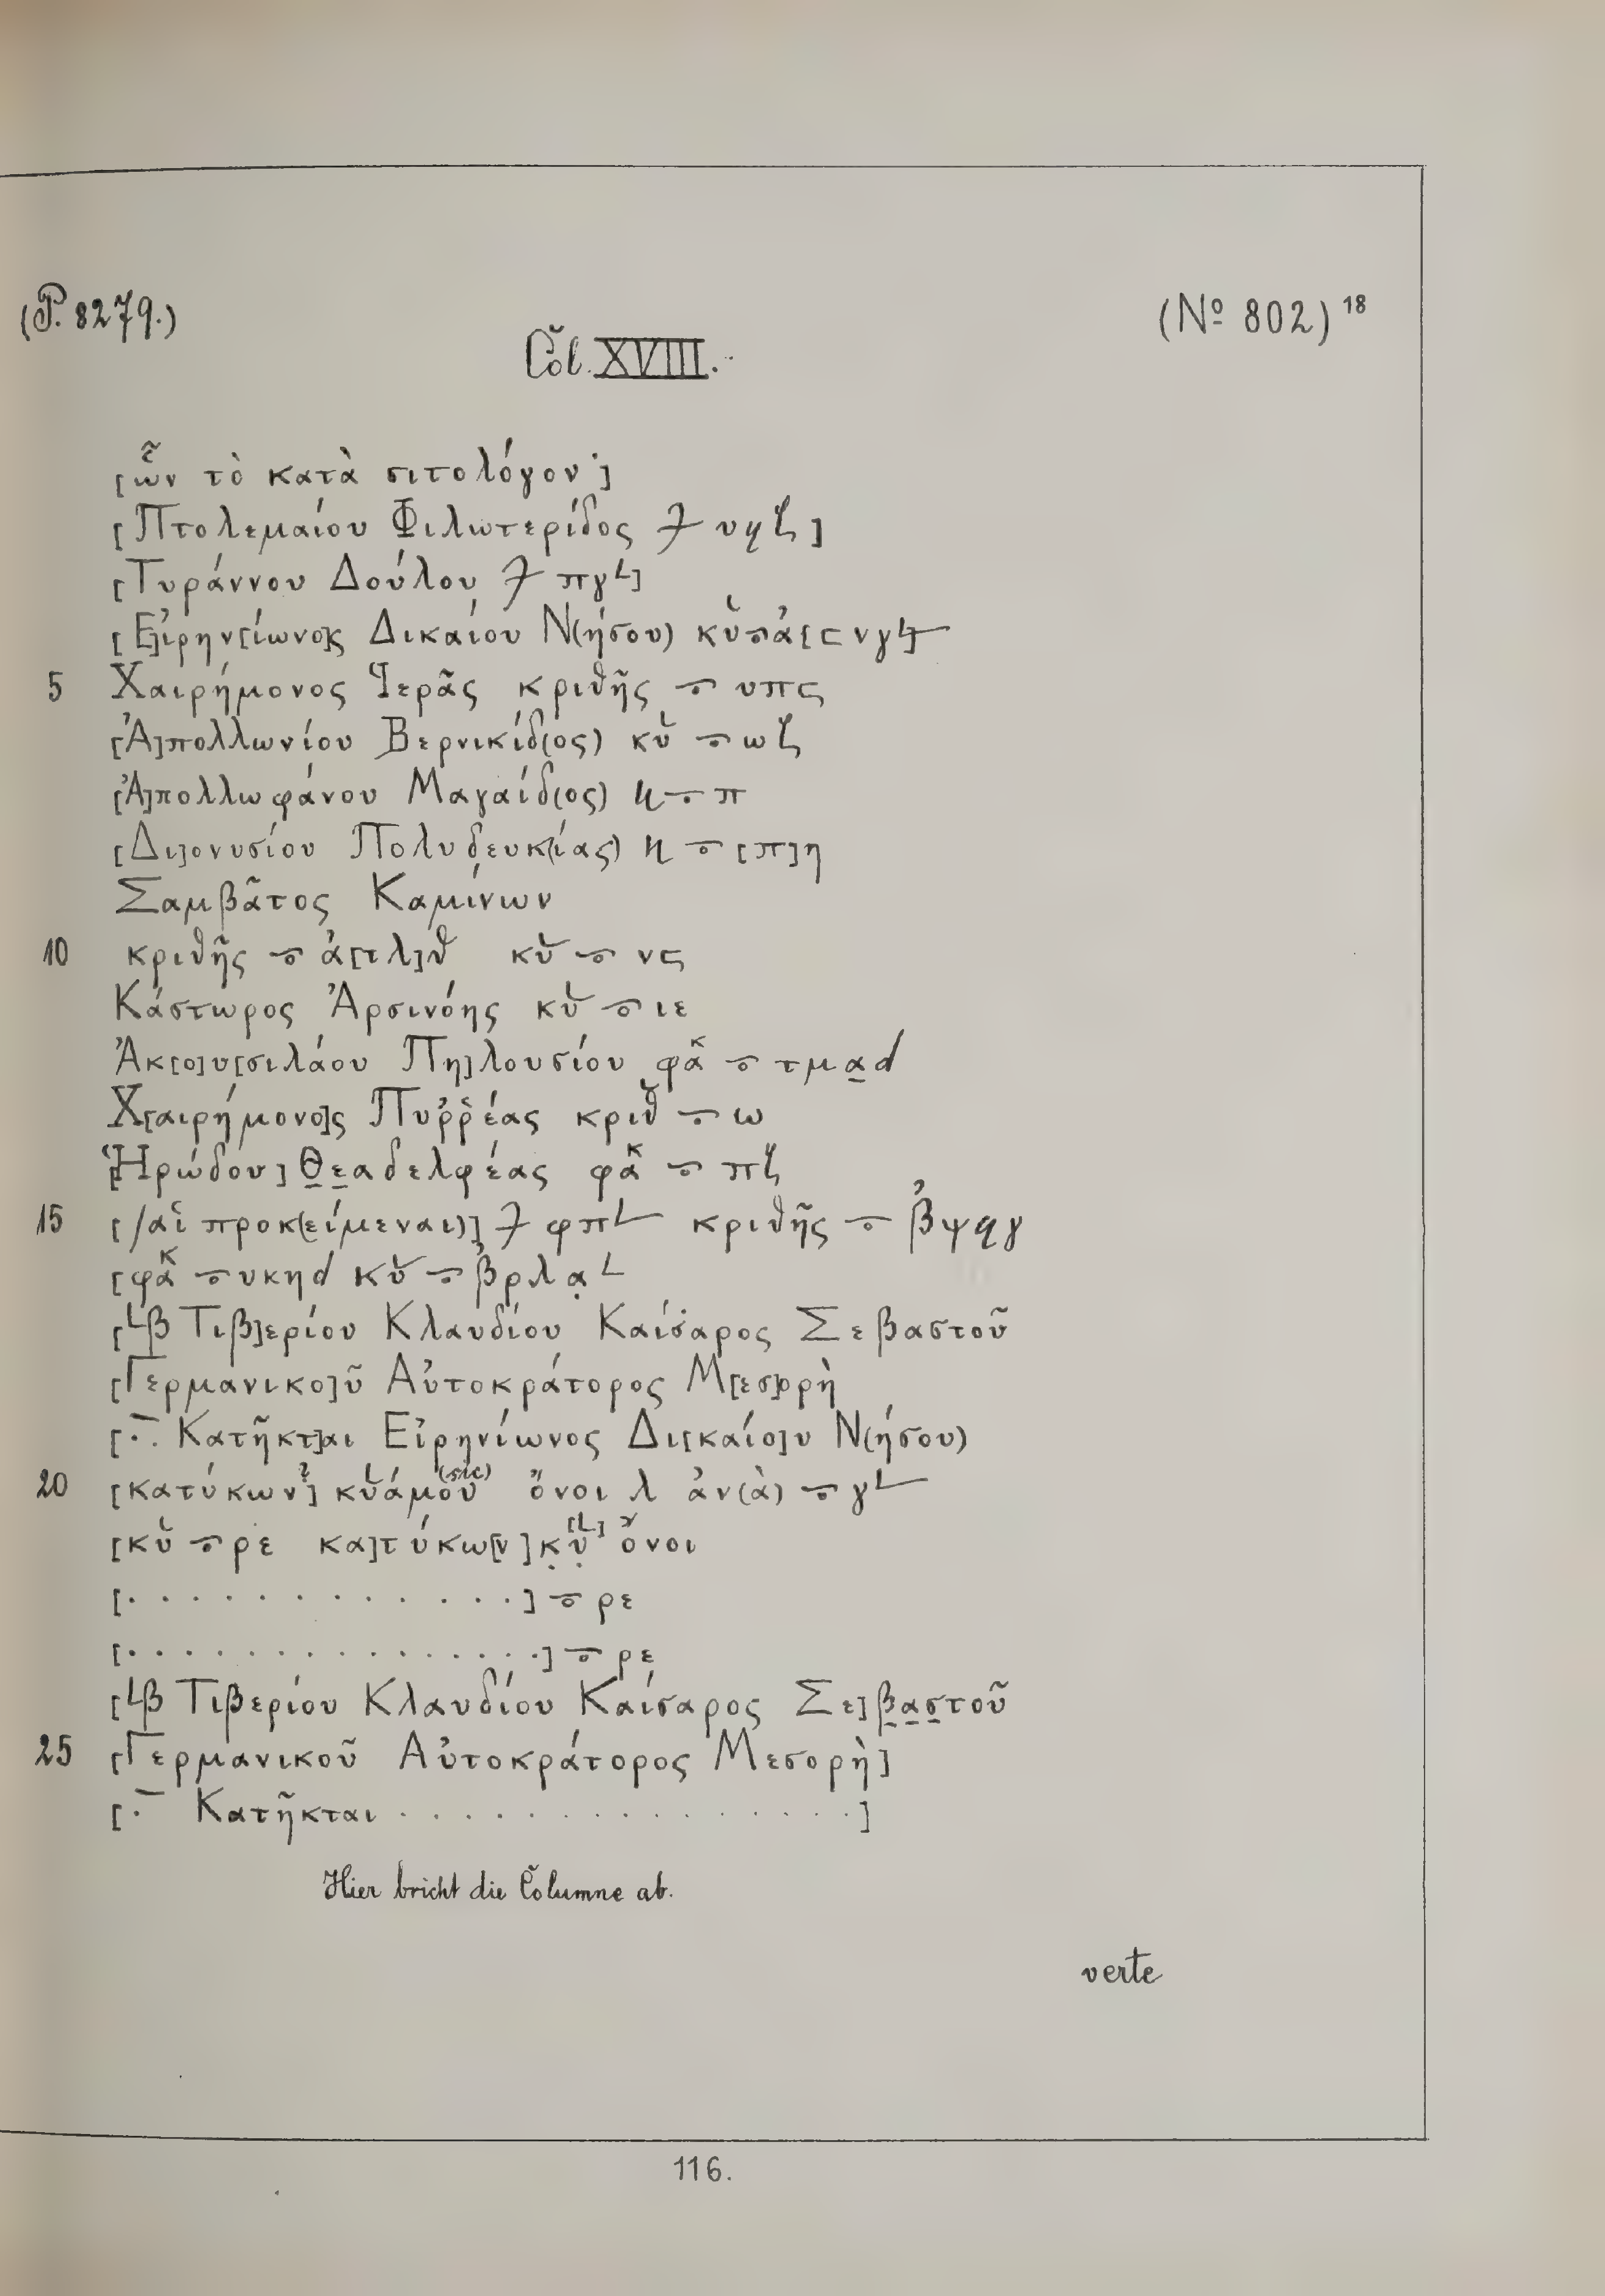 (P. 8279.)
(Nº 802) 18
Col. XVIII.
[ὧν τὸ κατὰ σιτολόγον·]
[Πτολεμαίου Φιλωτερίδος υϟζ]
[Τυράννου Δούλου πγ𐅵]
[Ε]ἰρην[ίωνο]ς Δικαίου Ν(ήσου)
5 Χαιρήμονος Ἱερᾶς κριθῆς ⲻ υπϛ
[Ἀ]πολλωνίου Βερνικίδ(ος) κυ ⲻ ωζ
[Ἀ]πολλωφάνου Μαγαίδ(ος) ⲻ π
[Δι]ονυσίου Πολυδευκ(ίας) ⲻ [π]η
Σαμβᾶτος Καμίνων
10 κριθῆς ⲻ ἀ[τλ]θ κυ ⲻ νϛ
Κάστωρος Ἀρσινόης κυ ⲻ ιε
Ἀκ[ο]υ[σιλάου Πη]λουσίου φακ ⲻ τμαd
Χ[αιρήμονο]ς Πυῤῥέας κριθ ⲻ ω
[Ἡρώδου] Θεαδελφέας φακ ⲻ πζ
15 [/αἱ προκ(είμεναι)] φπ𐅵 κριθῆς ⲻ βψϟγ
[φακ ⲻ υκηd κυ ⲻ βρλα𐅵
[𐅹β Τιβ]ερίου Κλαυδίου Καίσαρος Σεβαστοῦ
[Γερμανικο]ῦ Αὐτοκράτορος Μ[εσ]ορὴ
[·–. Κατῆκτ]αι Εἰρηνίωνος Δι[καίο]υ Ν(ήσου)
20 [κατύκων?] κυάμου (sic) ὄνοι λ ἀν(ὰ) ⲻ γ𐅵
[κυ ⲻ ρε κα]τύκω[ν] κυ ὄνοι
[. . . . . . . . . . . . .] ⲻ ρε
[. . . . . . . . . . . . . .] ⲻ ρε
[𐅹β Τιβερίου Κλαυδίου Καίσαρος Σε]βαστοῦ
25 [Γερμανικοῦ Αὐτοκράτορος Μεσορὴ]
[·– Κατῆκται . . . . . . . . . . . . . . .]
Hier bricht die Columne ab.
verte
116.